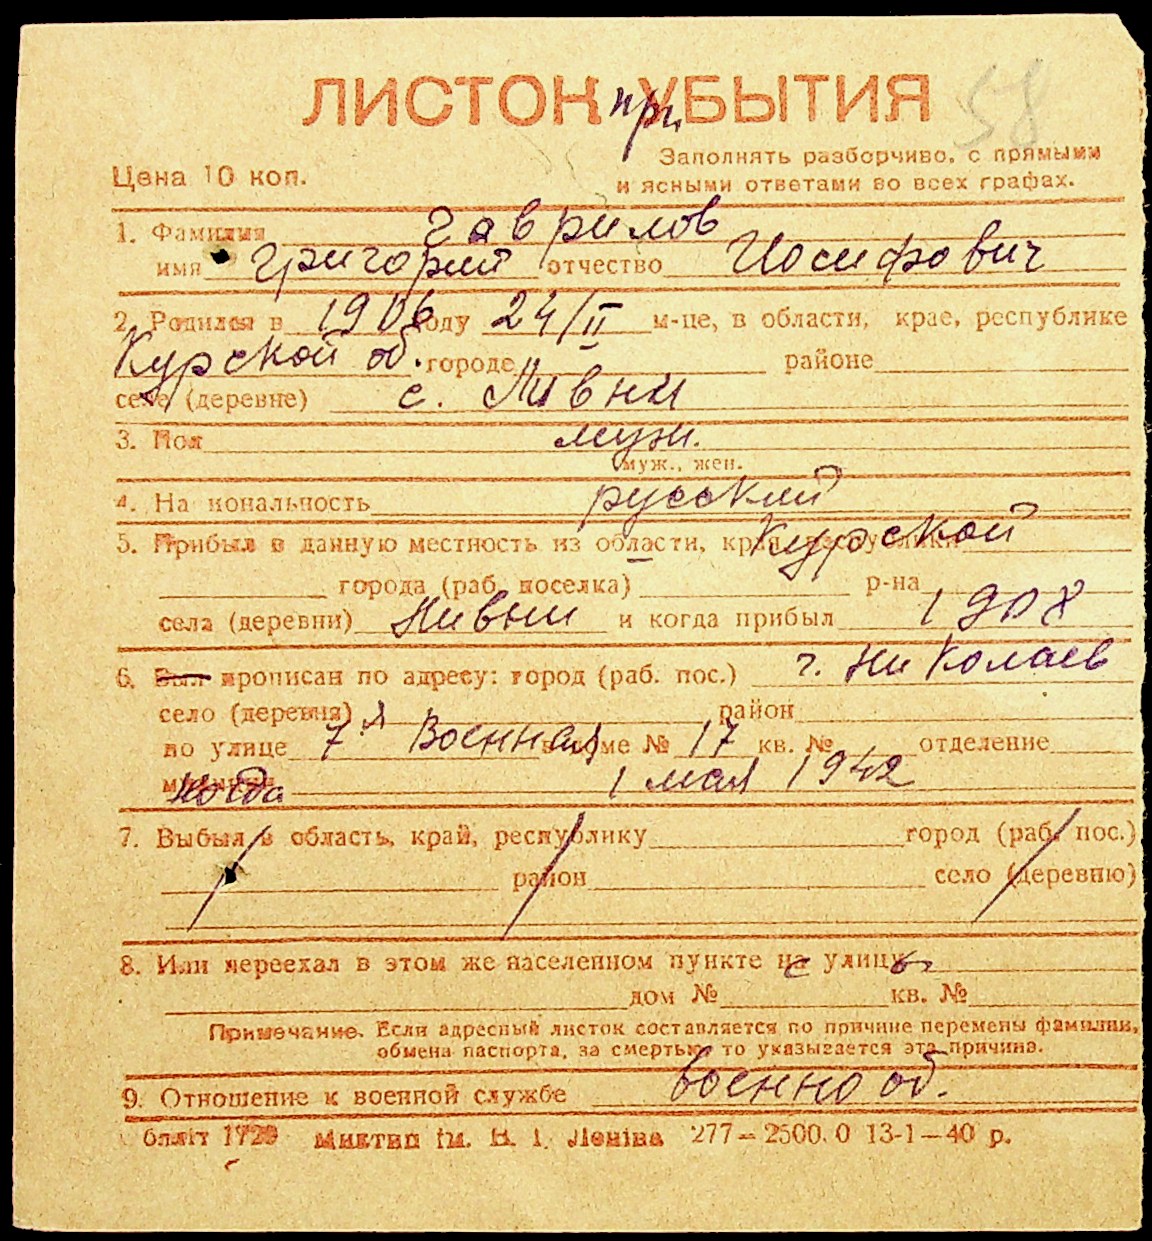 58
ЛИСТОК при УБЫТИЯ
Заполнять разборчиво, с прямыми
и ясными ответами во всех графах.
Цена 10 коп.
1. Фамилия Гаврилов
имя Григорий отчество Иосифович
2. Родился в 1906 году 24/II м-це, в области, крае, республике
Курской об. городе районе
селе (деревне) с. Ливни
3. Пол муж.
муж., жен.
4. На иональность русский
5. Прибыл в данную местность из области, края, республики Курской
города (раб. поселка) р-на
села (деревни) Ливни и когда прибыл 1908
6. Был прописан по адресу: город (раб. пос.) г. Николаев
село (деревня) район
по улице 7 я Военная в доме № 17 кв. № отделение
милиции когда 1 мая 1942
7. Выбыл в область, край, республику город (раб. пос.)
район село (деревню)
8. Или переехал в этом же населенном пункте с улицы
дом № кв. №
Примечание. Если адресный листок составляется по причине перемены фамилии,
обмена паспорта, за смертью, то указывается эта причина.
9. Отношение к военной службе военнооб.
1729 им. В. І. Леніна 277—2500. 0 13-1—40 р.